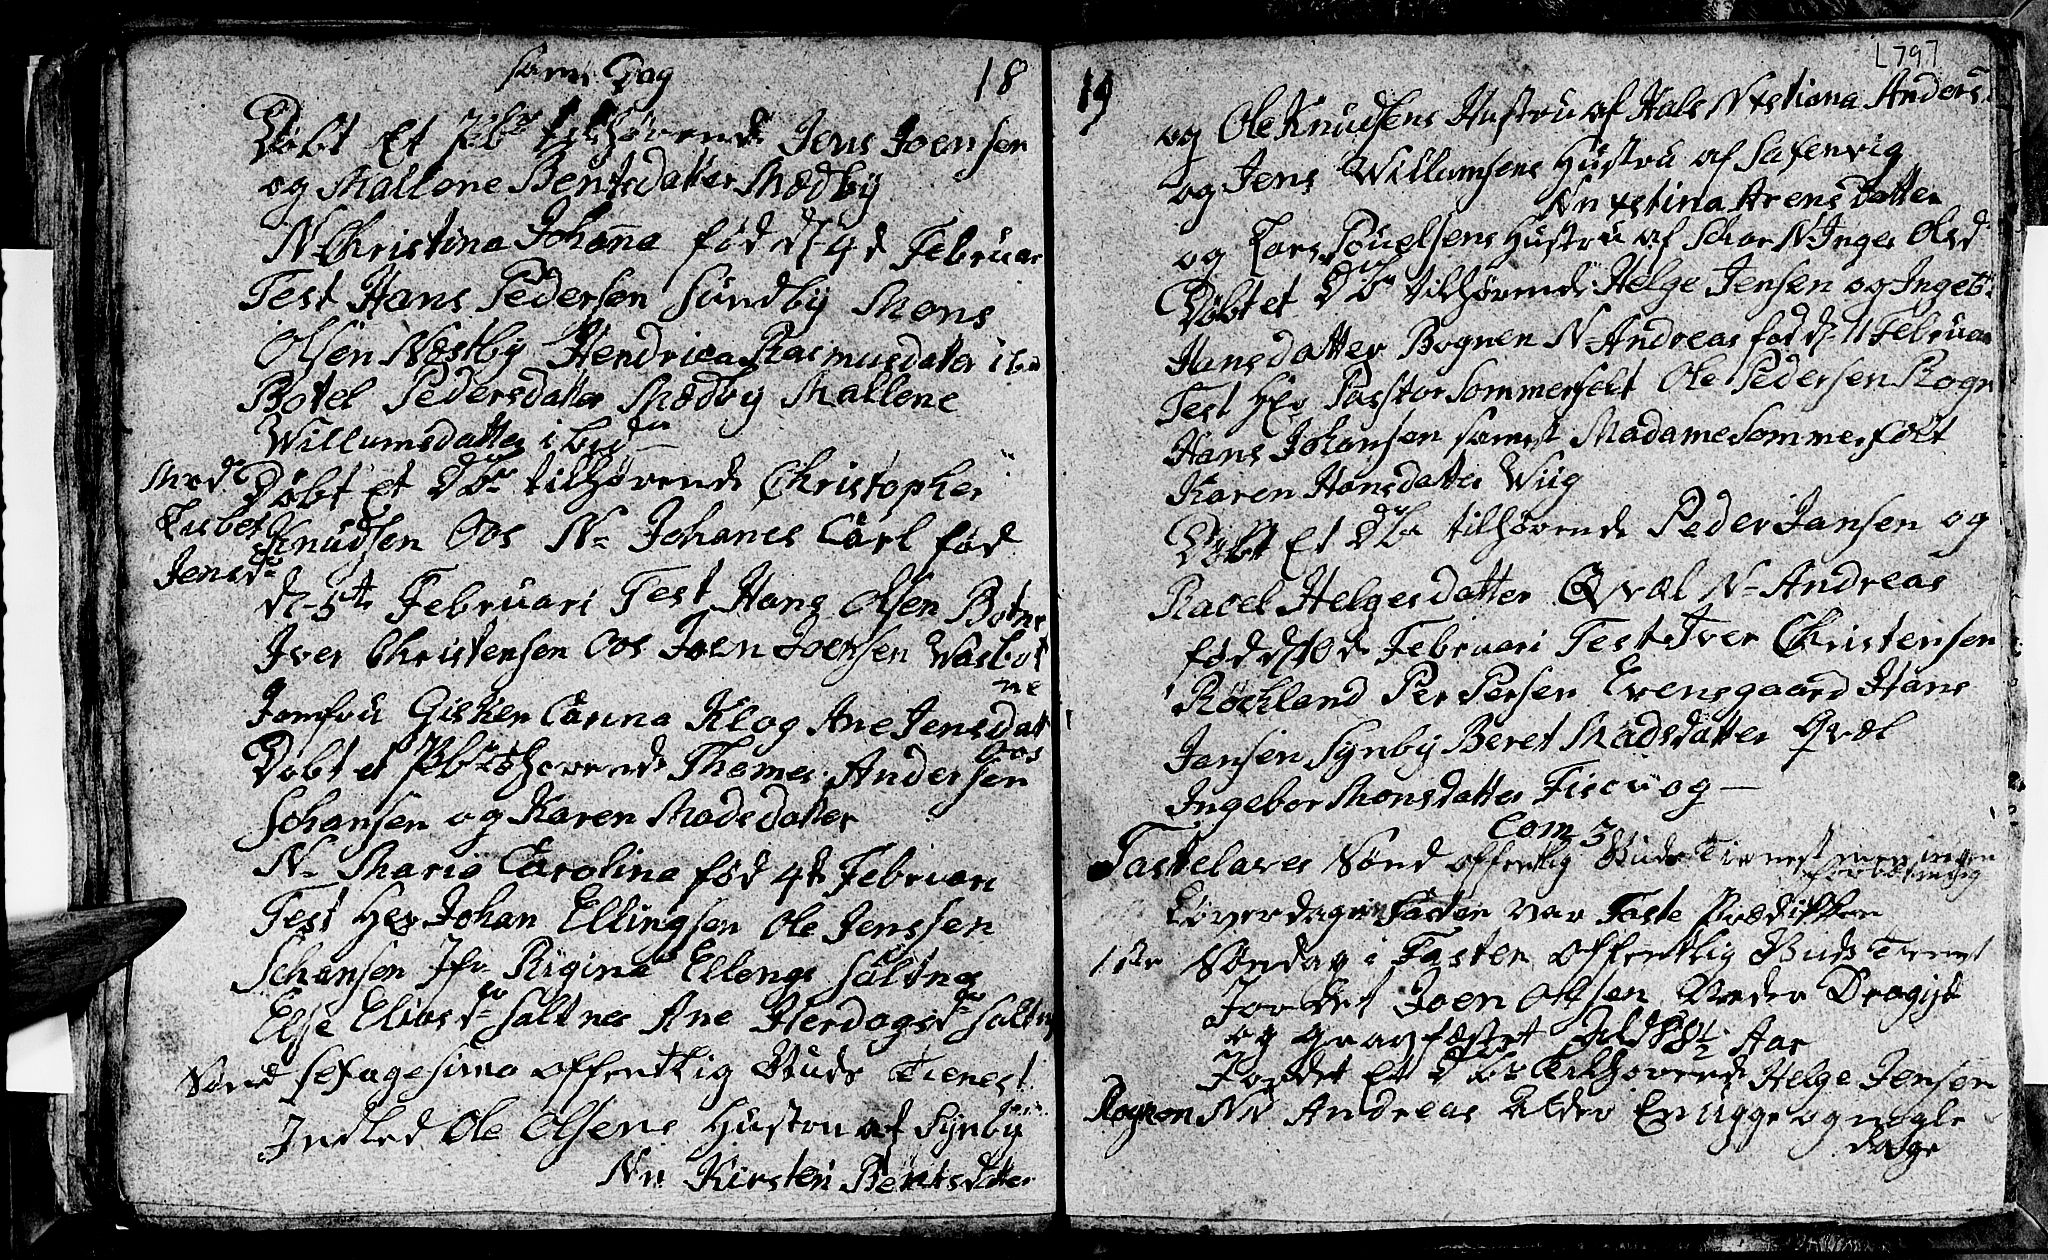 18
samme Dag
Døbt Et tilhørende Jens Joensen
og Mallene Bentsdatter Mædby
N Christina Johana fød d 4d Februar
Test Hans Pedersen Sundby Mons
Olsen Næstby Hendrica Rasmusdatter ibd
Botel Pedersdatter Mædby Mallene
Willumsdatter ibid
Døbt Et Db tilhørende Christopher
Med
Lisbet
Jensd
Knudsen Oos N- Johanes Carl fød
d 5te Februari Test Hans Olsen Botne
Iver Christensen Oos Joen Joensen Wasbot
ne
Jomfru Gisken Carina Klog Ane Jensdat
Oos
Døbt et tilhørende Thomes Andersen
Johansen og Karen Madsdatter
N- Maria Carolina fød 4de Februari
Test Her Johan Ellingsen Ole Jenssen
Johansen Jfr Rigina Ellengs Saltnes
Else Eliasd Saltnes Ane Herdagsd Saltn
Sønd Sexagesima offentlig Guds Tienest
Indled Ole Olsens Hustru af Synby
Nn Kirsten Bentsdatter
19
1797
og Ole Knudsens Hustru af Hals Nxstiana Anders
og Jens Willumsens Hustru af Saxenvig
Nn xstina Arensdatter
og Lars Pouelsens Hustru af N Inger Olsd
Døbt et Db tilhørende Helge Jensen og Ingeb
Hansdatter Rognen N- Andreas fød d 11 Februar
Test Her Pastor Sommerfelt Ole Pedersen Rogn
Hans Johansen samt Madame Sommerfelt
Karen Hansdatter Wiig
Døbt Et Db tilhørende Peder Jansen og
Racel Helgesdatter Qvæl N- Andreas
fød d 10de Februari Test Iver Christensen
Røchland Per Persen Evensgaard Hans
Jensen Synby Beret Madsdatter Qvæl
Ingebor Monsdatter Fiscvog
Com 3
Fastelaves Sønd offentlig Guds Tienest men ingen
Løverdagen Fasten var Faste Prædikken
1ste Søndag i Fasten offentlig Guds Tienest
Jordet Joen Olsen
og Graafæstet 1/2 Aar
Jordet Et Db tilhørende Helge Jensen
Rognen Nn Andreas Alder En ugge og nogle
dage